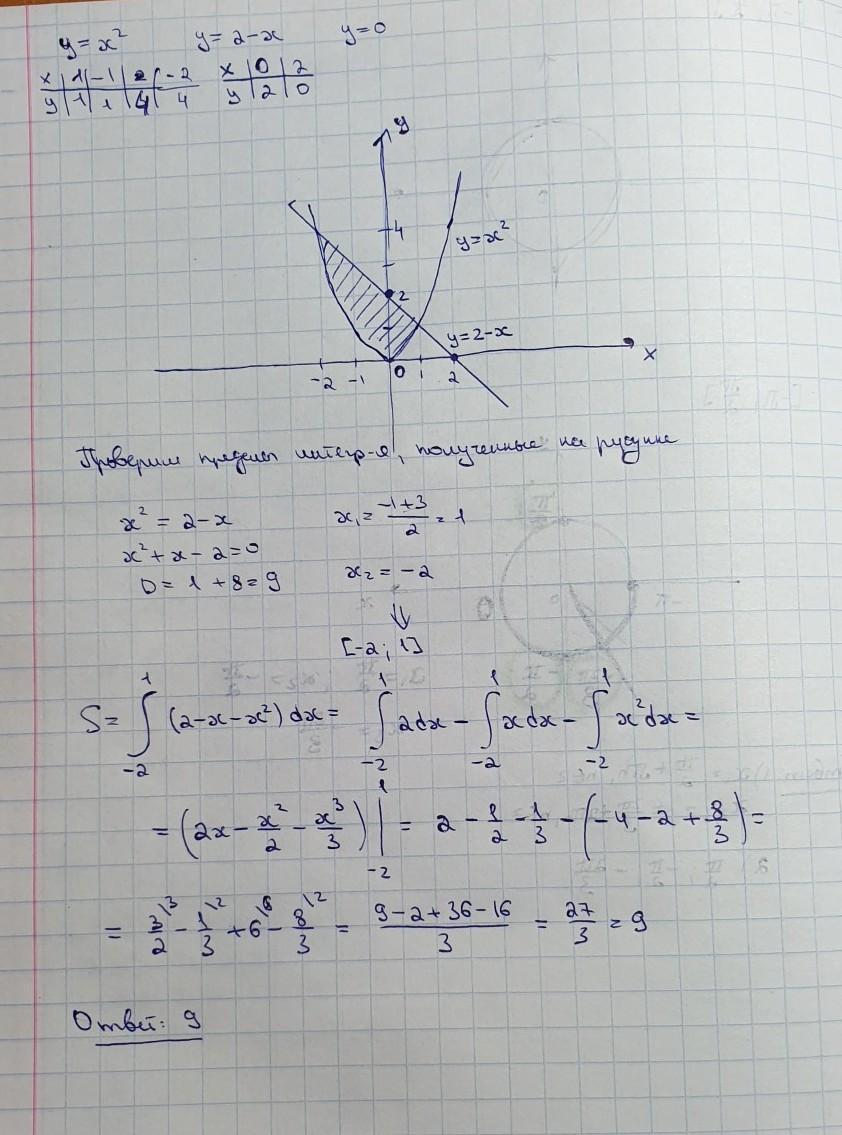 y=x² y=2-x y=0
x | 1 | -1 | 2 | -2 x | 0 | 2
y | 1 | 1 | 4 | 4 y | 2 | 0
y
4
y=x²
2
y=2-x
x
-2 -1 0 1 2
Проверим пределы интегр-я, полученные на рисунке
x² = 2-x x₁ = (-1+3)/2 = 1
x²+x-2=0
D = 1+8=9 x₂ = -2
⇓
[-2; 1]
S = ∫₋₂¹ (2-x-x²)dx = ∫₋₂¹ 2dx - ∫₋₂¹ xdx - ∫₋₂¹ x²dx =
= (2x - x²/2 - x³/3)|₋₂¹ = 2 - 1/2 - 1/3 - (-4 - 2 + 8/3) =
= 3/2\3 - 1/3\2 + 6\6 - 8/3\2 = (9-2+36-16)/3 = 27/3 = 9
Ответ: 9